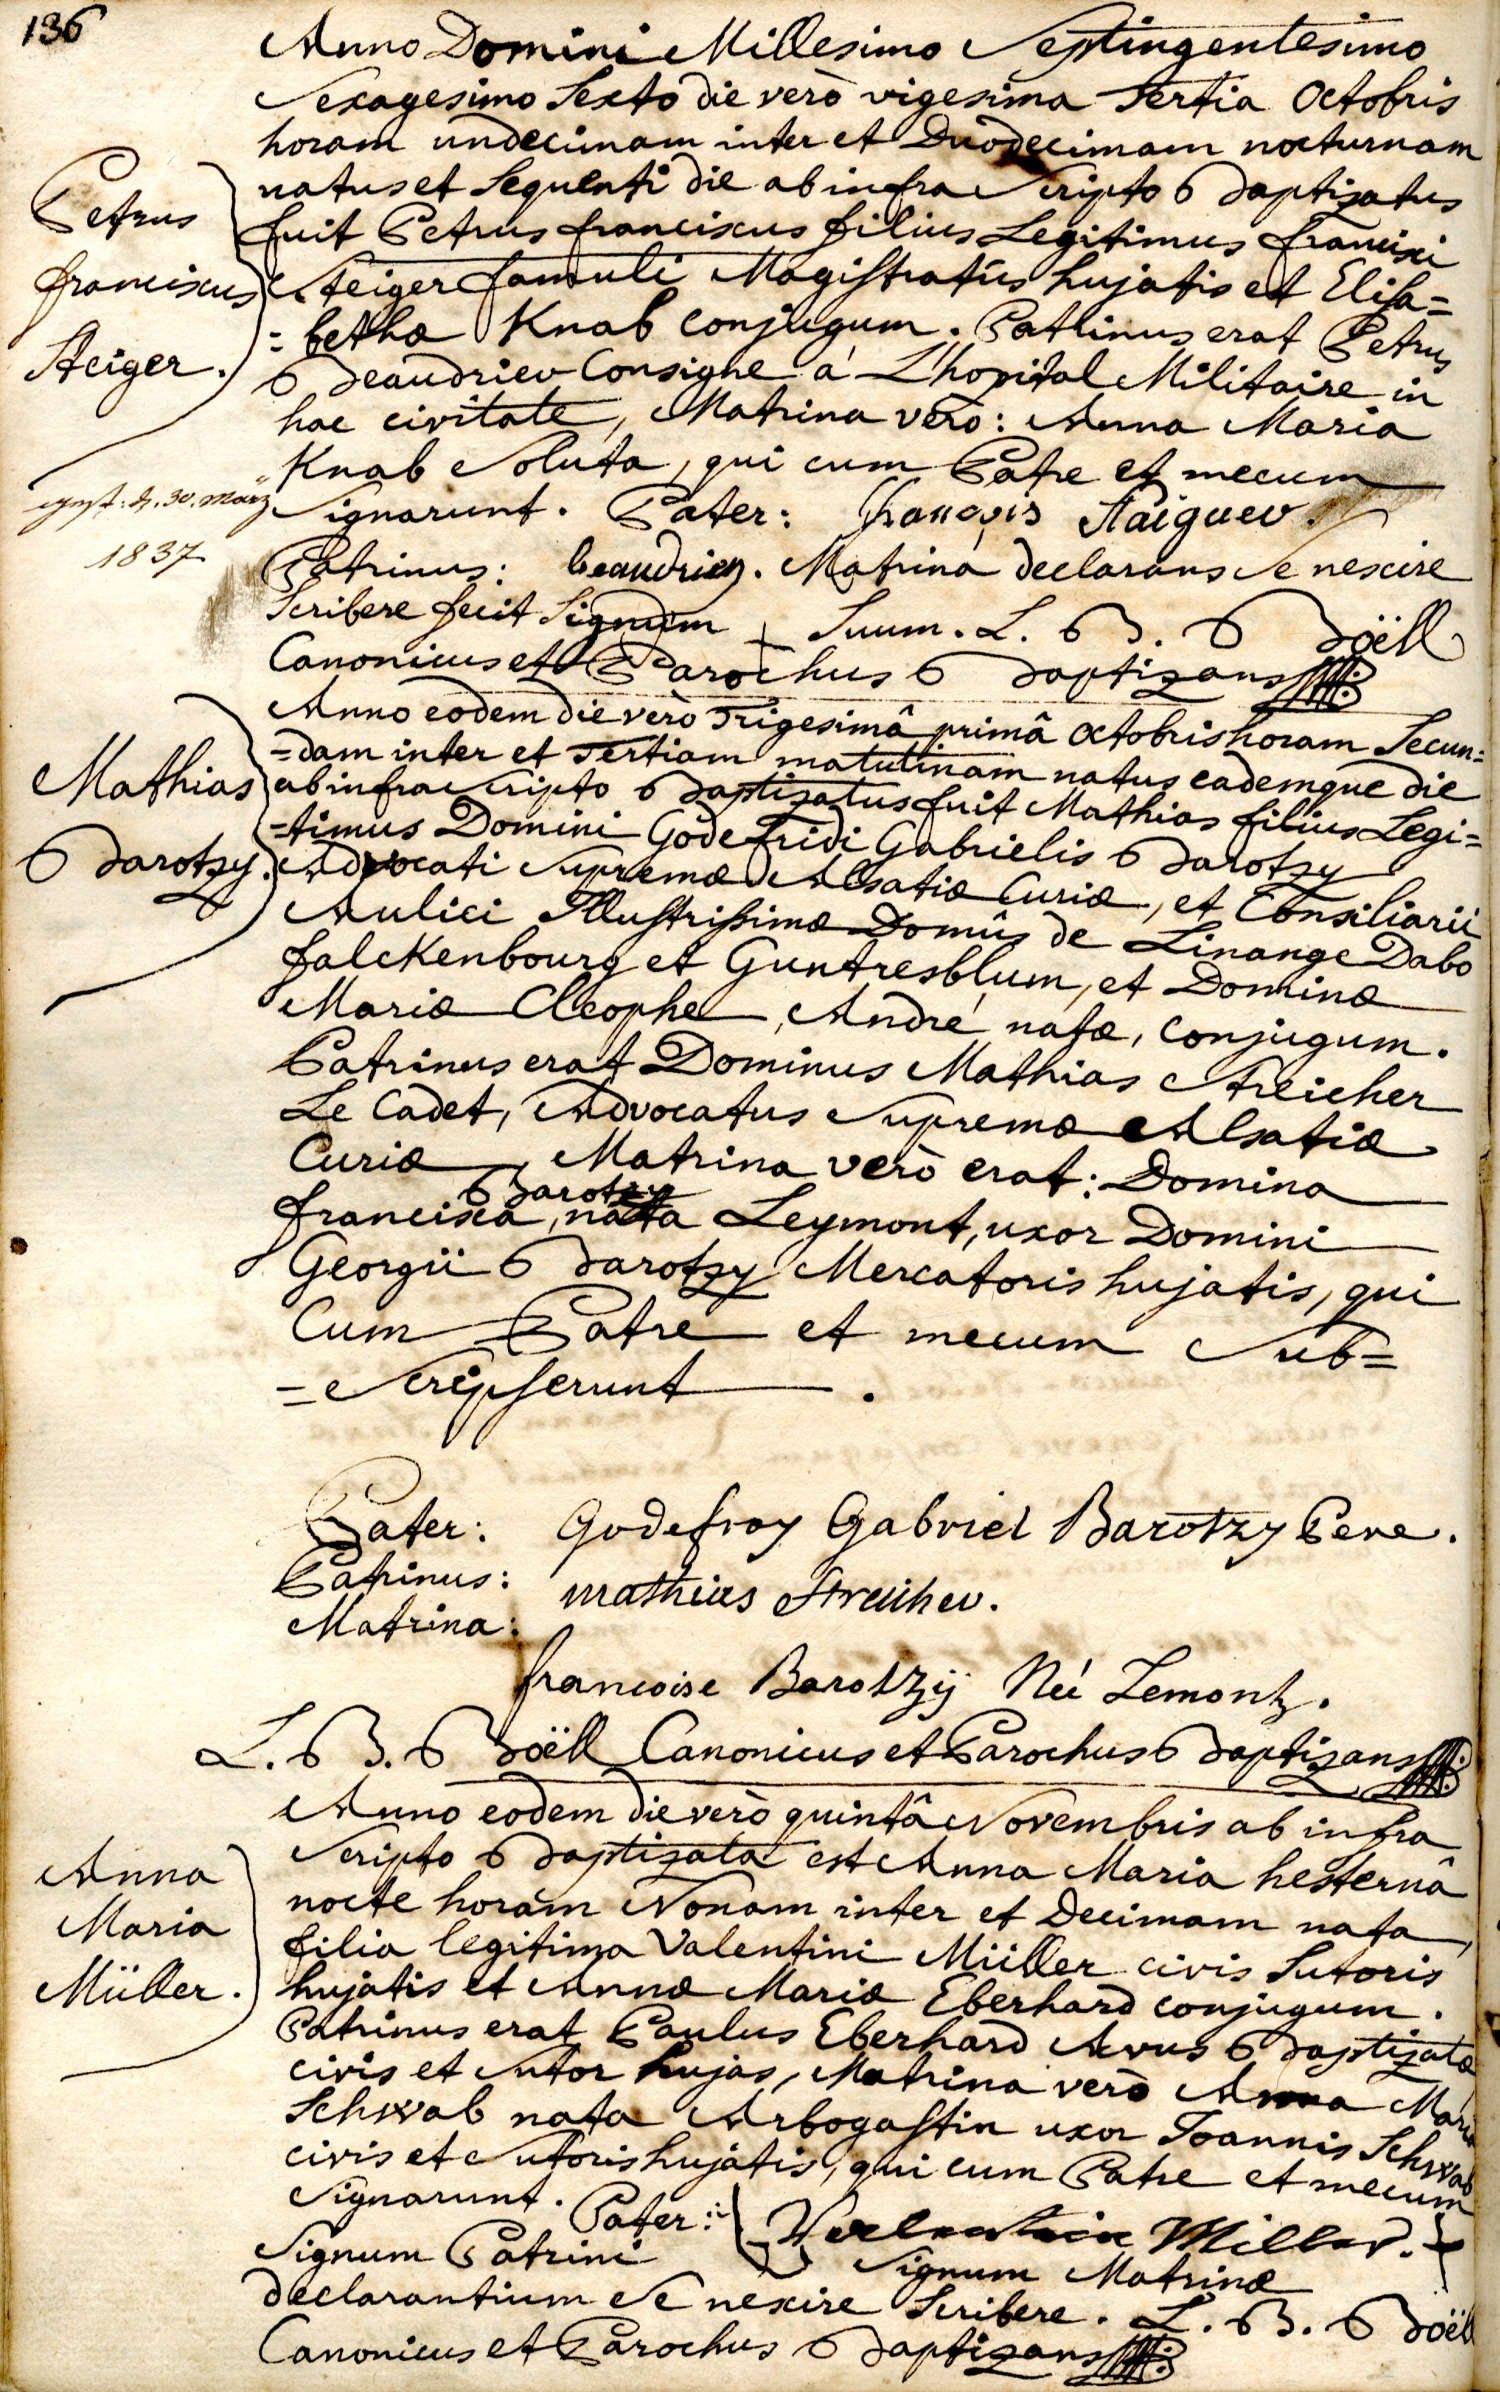 136
Anno Domini Millesimo Septingentesimo
Sexagesimo Sexto die verò vigesima Tertia Octobris
horam undecimam inter et Duodecimam nocturnam
natus et Sequenti die ab infra Scripto Baptizatus
fuit Petrus franciscus filius Legitimus francisci
Steiger famuli Magistratûs hujatis et Elisa=
=bethæ Knab conjugum. Patrinus erat Petrus
Beaudrieu Consigne á L'hopital Militaire in
hac civitate, Matrina vero: Anna Maria
Knab Soluta, qui cum Patre et mecum
Signarunt. Pater: françois Staiguer.
Patrinus: beaudrieu. Matrina declarans Se nescire
Scribere fecit Signum + Suum. L. B. Boëll
Canonicus et Parochus Baptizans
Petrus
franciscus
Steiger.
gest: d. 30. März
1837
Anno eodem die verò Trigesimâ primâ Octobris horam Secun=
=dam inter et Tertiam matutinam natus eademque die
ab infra Scripto Baptizatus fuit Mathias filius Legi=
=timus Domini Godefridi Gabrielis Barotzy
Advocati Supremæ Alsatiæ Curiæ, et Consiliarii
Aulici Illustrissimæ Domûs de Linange Dabo
falckenbourg et Guntresblum, et Dominæ
Mariæ Cleophe, André natæ, conjugum.
Patrinus erat Dominus Mathias Streicher
Le Cadet, Advocatus Supremæ Alsatiæ
Curiæ, Matrina verò erat: Domina
Barotzy
francisca, nata Leymont, uxor Domini
Georgii Barotzy Mercatoris hujatis, qui
Cum Patre et mecum Sub=
=Scripserunt.
Mathias
Barotzy.
Pater: Godefroy Gabriel Barotzy Pere.
Patrinus: mathias Streicher.
Matrina:
francoise Barotzÿ Neé Lemont.
L. B. Boëll Canonicus et Parochus Baptizans
Anno eodem die verò quintâ Novembris ab infra
Scripto Baptizata est Anna Maria hesternâ
nocte horam Nonam inter et Decimam nata,
filia legitima Valentini Müller civis Sutoris
hujatis et Annæ Mariæ Eberhard conjugum.
Patrinus erat Paulus Eberhard Avus Baptizatæ
civis et Sutor hujas, Matrina verò Anna Maria
Schwab nata Arbogastin uxor Joannis Schwab
civis et Sutoris hujatis, qui cum Patre et mecum
Signarunt. Pater: Valentin Miller.
Signum Patrini Signum Matrinæ
declarantium Se nescire Scribere. L. B. Boëll
Canonicus et Parochus Baptizans
Anna
Maria
Müller.